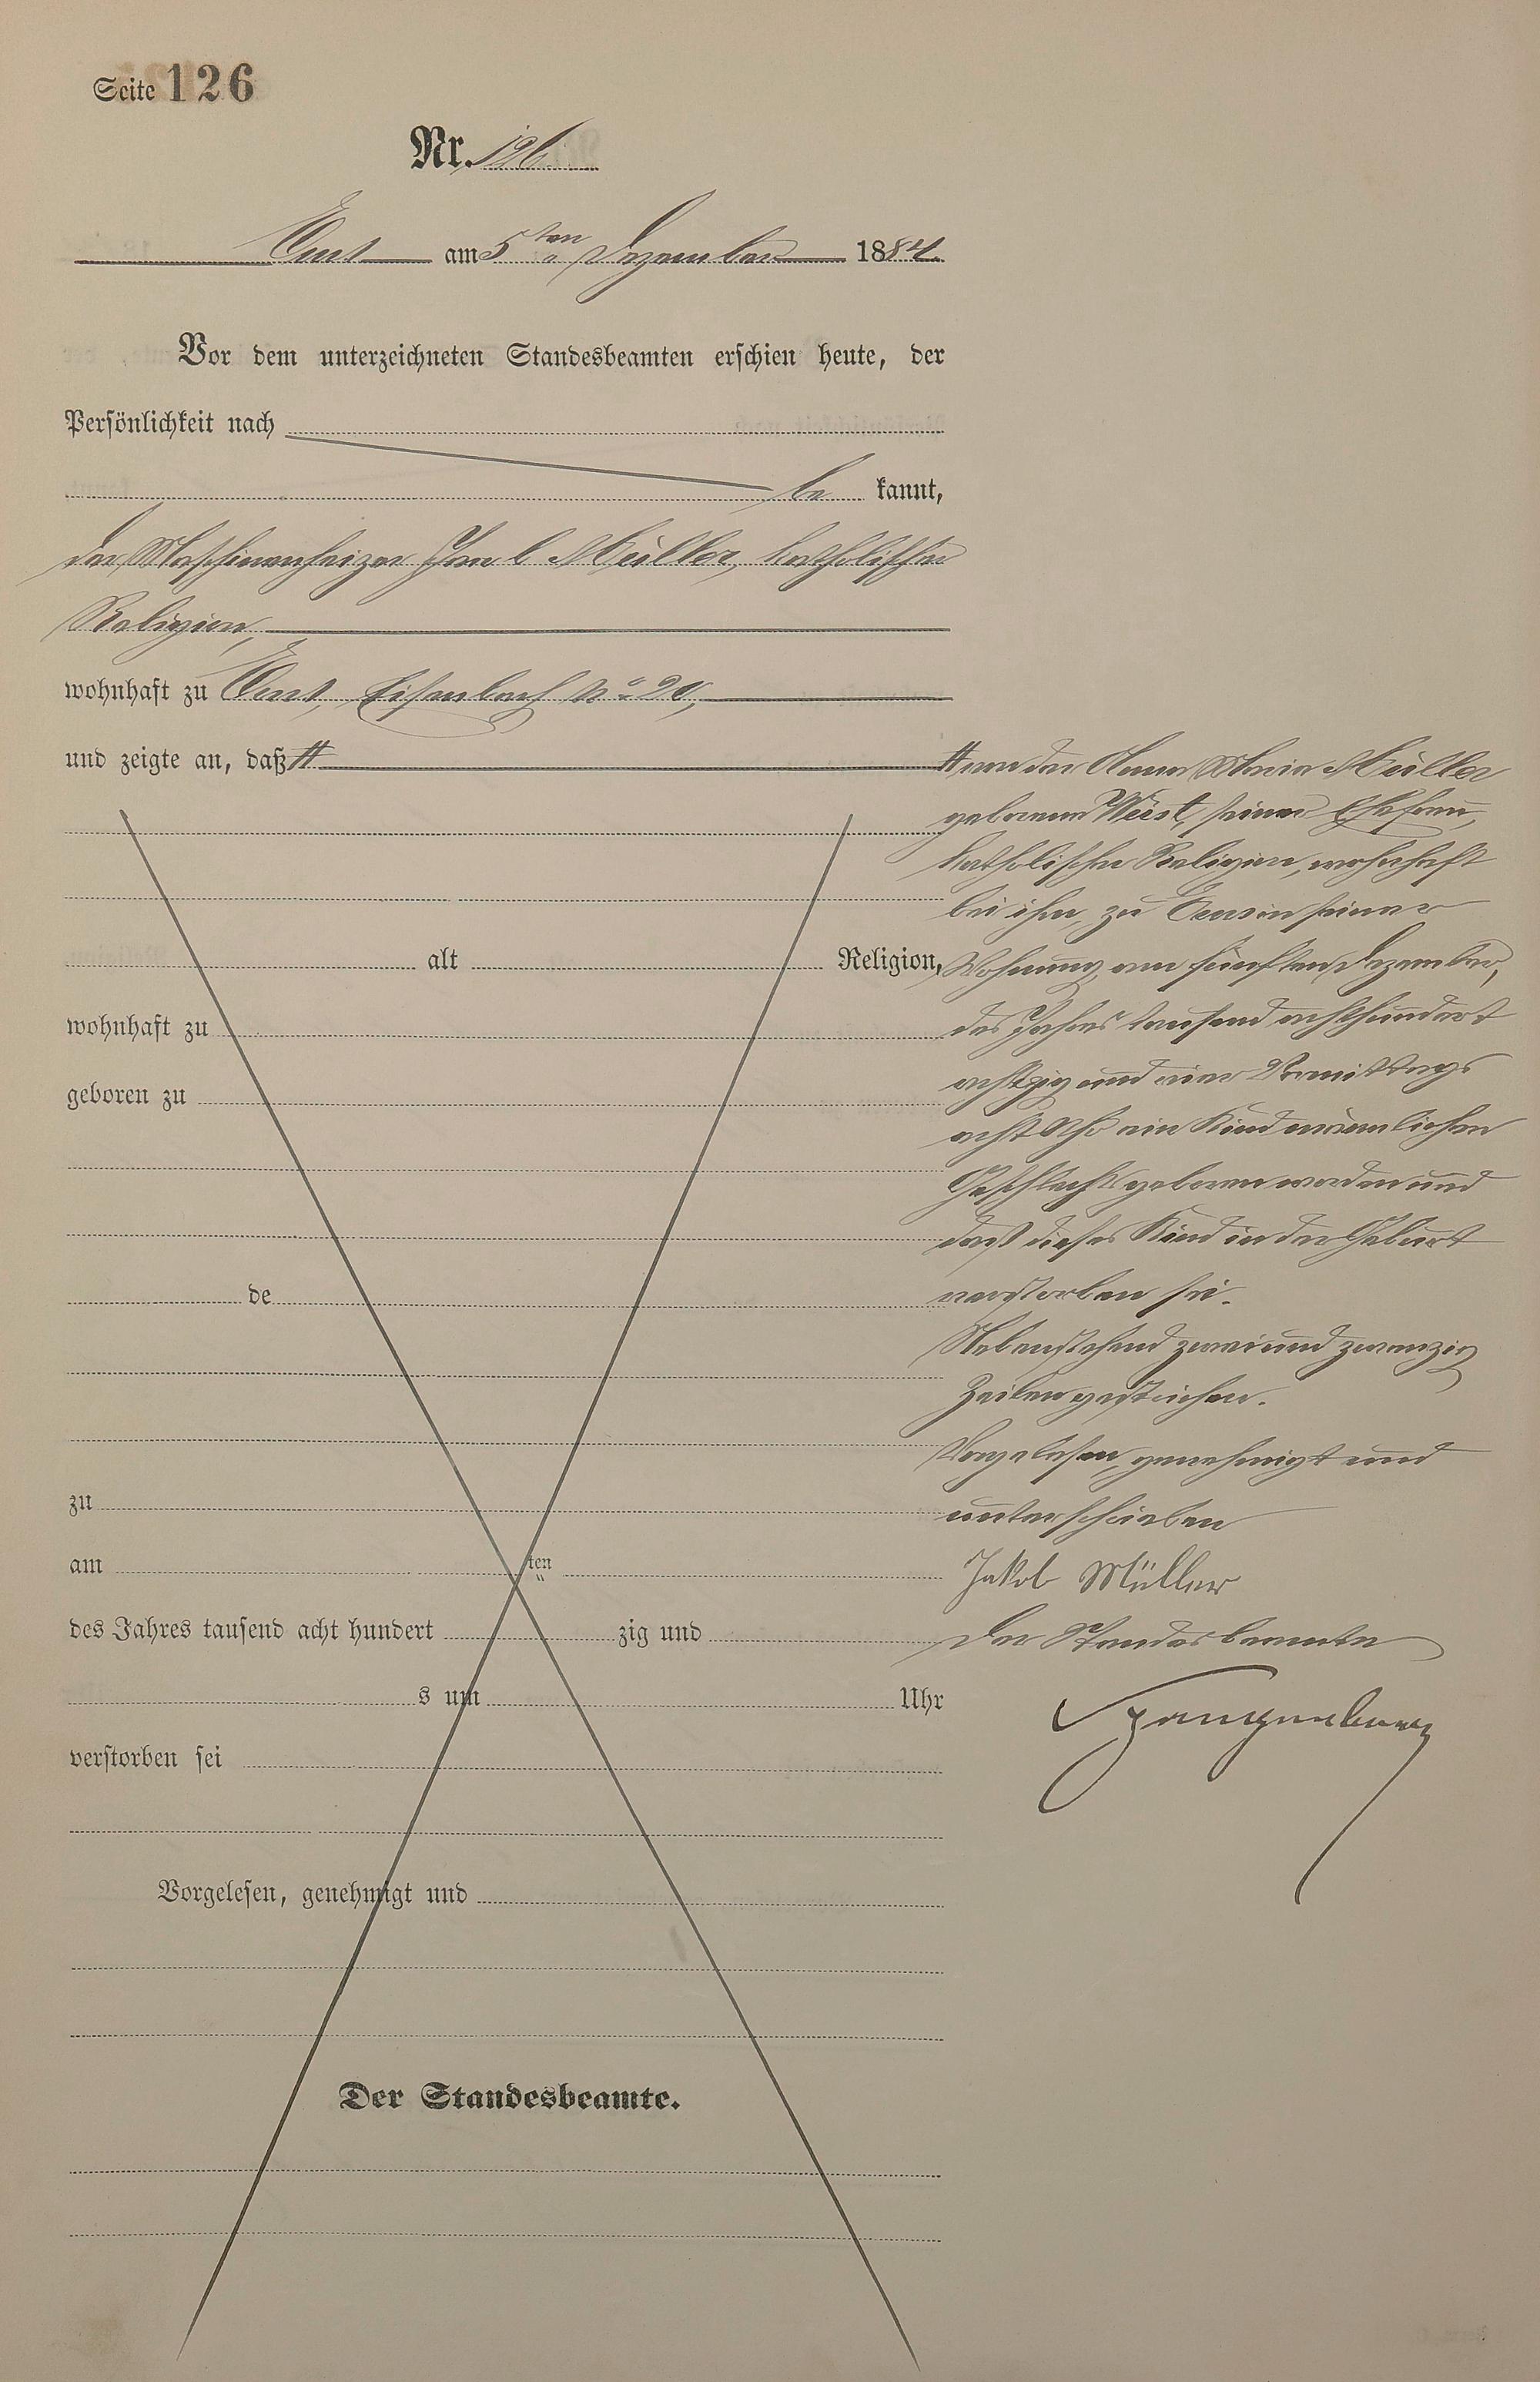 Seite 126
Nr. 126
am 5 ten Dezember 1884.
Vor dem unterzeichneten Standesbeamten erschien heute, der
Persönlichkeit nach
be kannt,
der Maschinenheizer Jacob Müller, katholischer
Religion,
wohnhaft zu Eisenbach No 20,
und zeigte an, daß #
# von der Anna Maria Müller
geborenen seiner Ehefrau,
katholischer Religion, wohnhaft
bei ihm, zu in seiner
Wohnung, am fünften Dezember,
des Jahres tausend achthundert
achtzig und vier Vormittags
acht Uhr ein Kind männlichen
Geschlechts geboren worden und
daß dieses Kind in der Geburt
verstorben sei.
Nebenstehend zwei und zwanzig
Zeilen gestrichen.
Vorgelesen, genehmigt und
unterschrieben
Jakob Müller
Der Standesbeamte
alt Religion,
wohnhaft zu
geboren zu
de
zu
am ten
des Jahres tausend acht hundert zig und
s um Uhr
verstorben sei
Vorgelesen, genehmigt und
Der Standesbeamte.